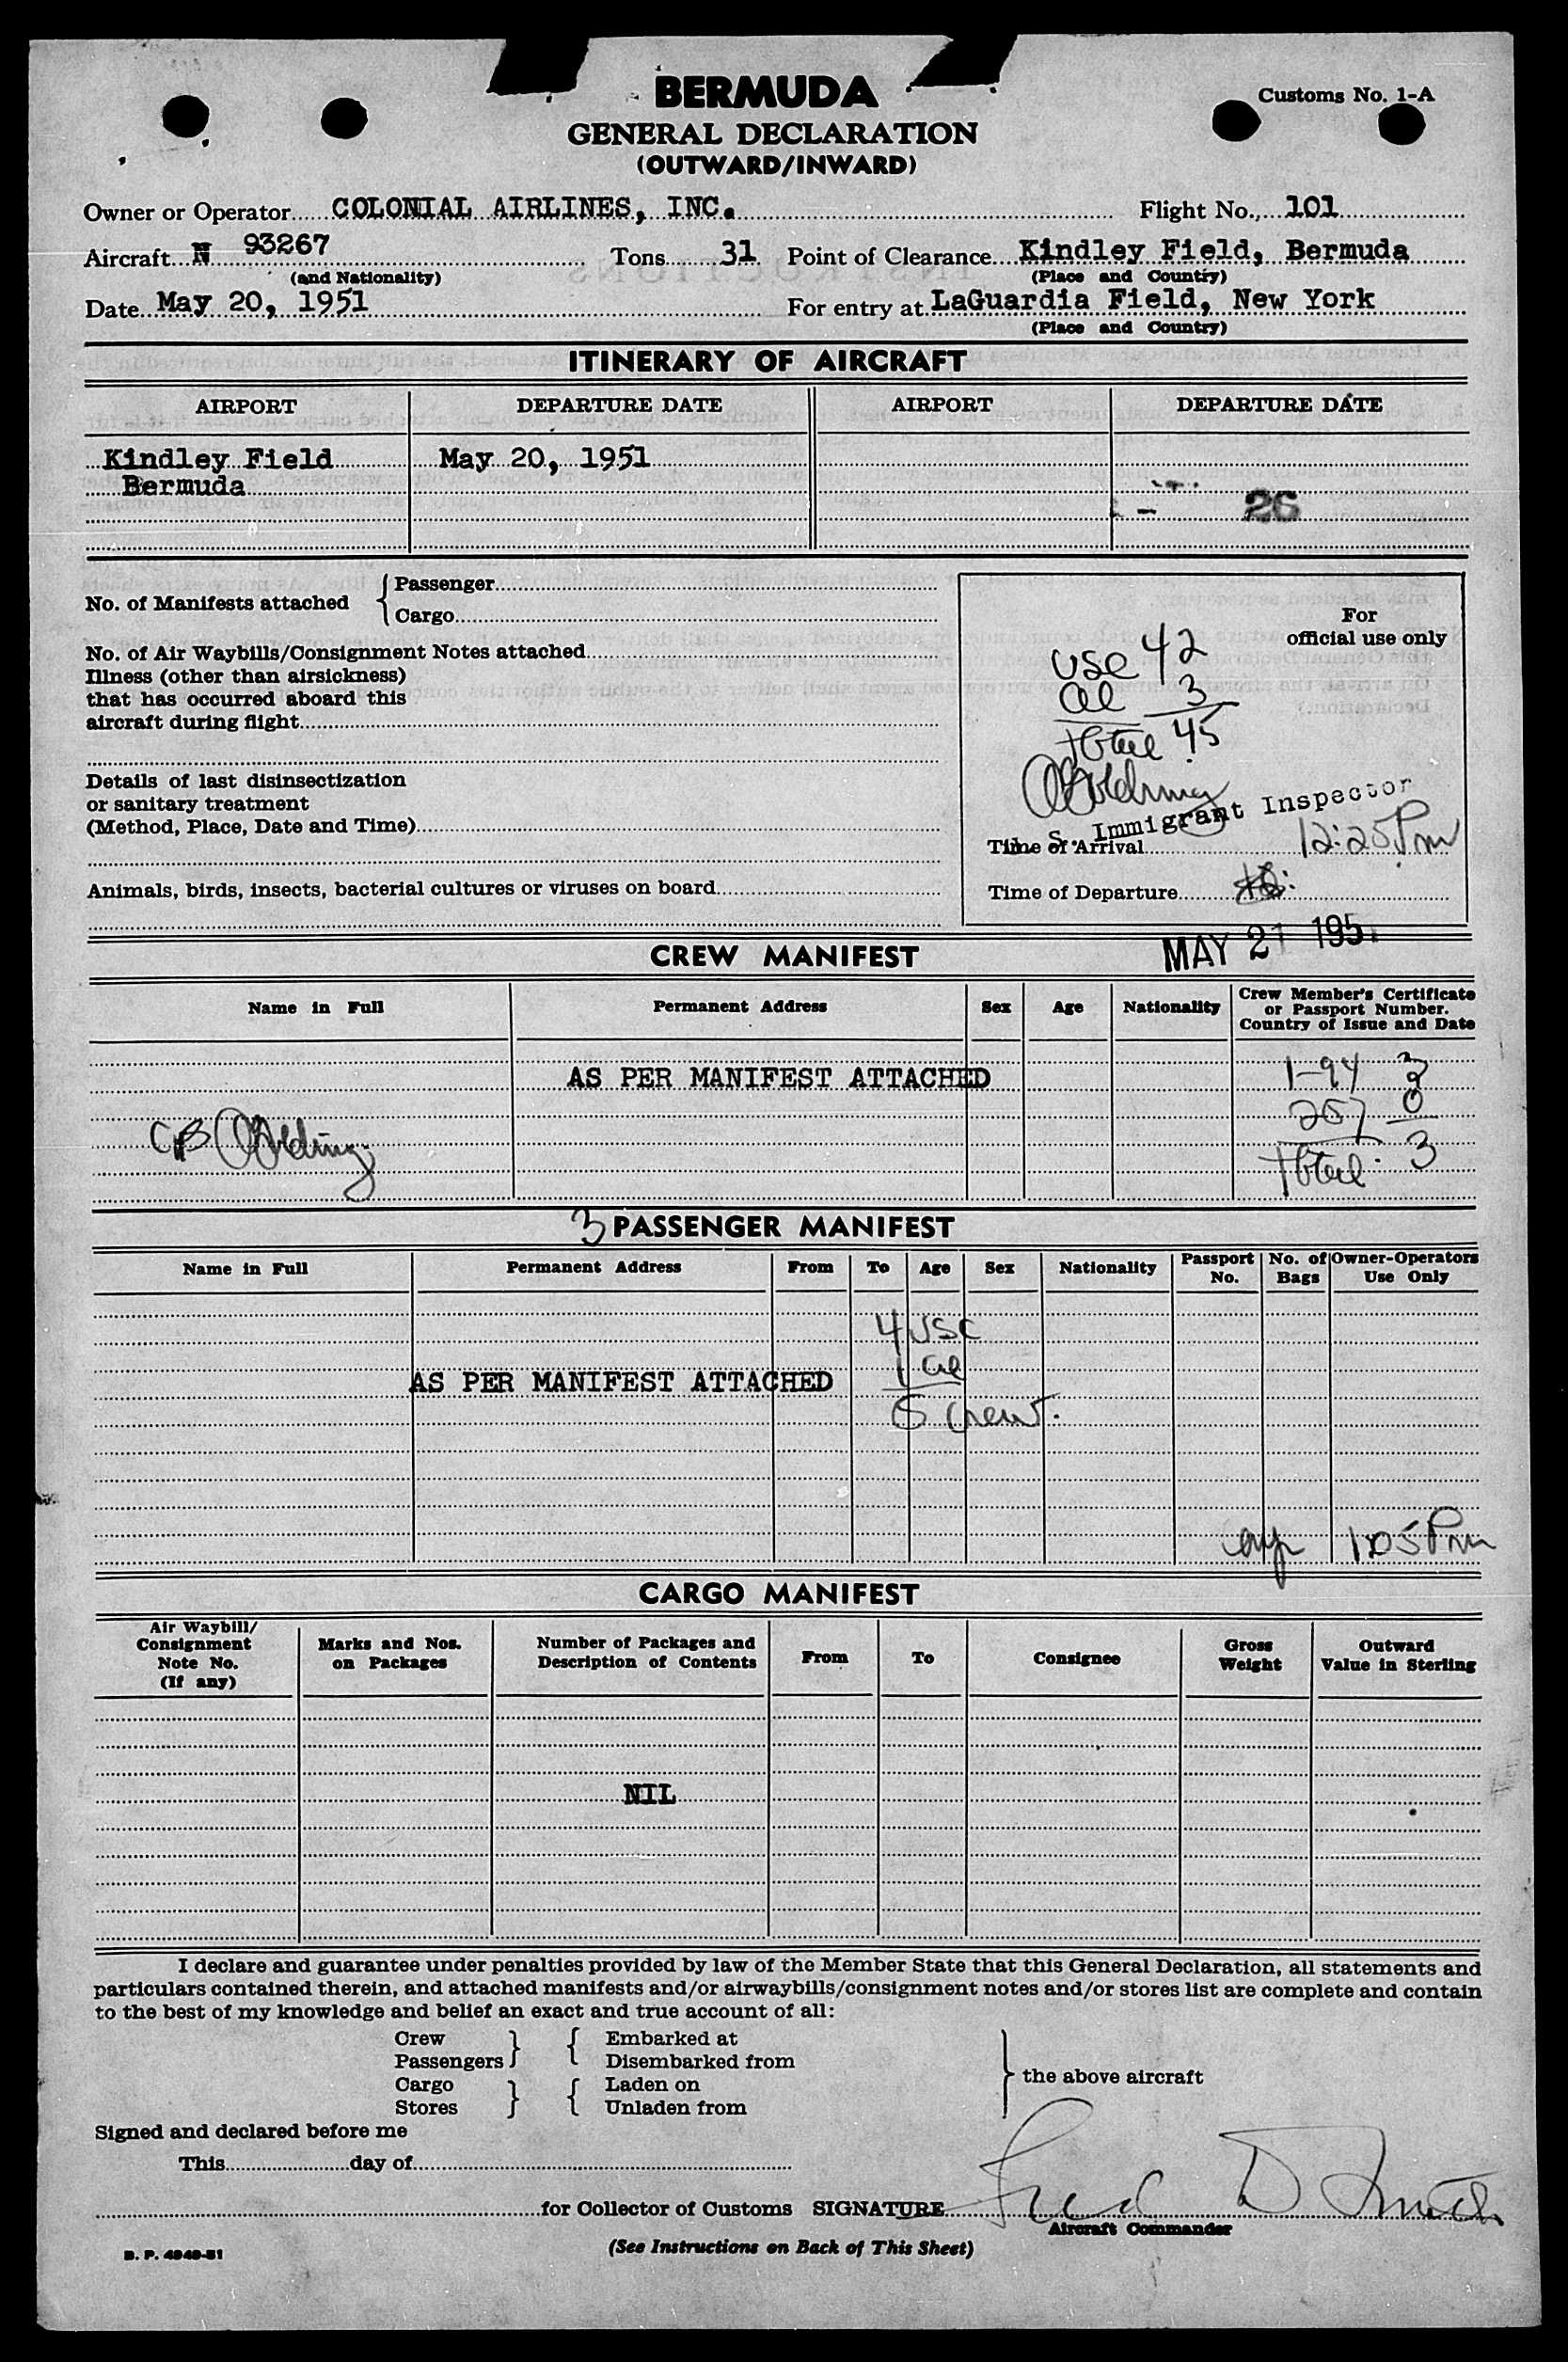 BERMUDA
Customs No. 1-A
GENERAL DECLARATION
(OUTWARD/INWARD)
Owner or Operator COLONIAL AIRLINES, INC. Flight No., 101
Aircraft N 93267 Tons 31 Point of Clearance Kindley Field, Bermuda
(and Nationality) (Place and Country)
Date May 20, 1951 For entry at LaGuardia Field, New York
(Place and Country)
ITINERARY OF AIRCRAFT
AIRPORT DEPARTURE DATE AIRPORT DEPARTURE DATE
Kindley Field May 20, 1951
Bermuda
26
No. of Manifests attached { Passenger
Cargo
For
official use only
No. of Air Waybills/Consignment Notes attached
Illness (other than airsickness)
that has occurred aboard this
aircraft during flight
USC 42
al 3
total 45
Details of last disinsectization
or sanitary treatment
(Method, Place, Date and Time)
Immigrant Inspector
Time of Arrival 12:25 Pm
Animals, birds, insects, bacterial cultures or viruses on board
Time of Departure
MAY 21 195
CREW MANIFEST
Name in Full Permanent Address Sex Age Nationality Crew Member's Certificate
or Passport Number.
Country of Issue and Date
AS PER MANIFEST ATTACHED
1-94 3
257 0
total 3
3 PASSENGER MANIFEST
Name in Full Permanent Address From To Age Sex Nationality Passport No. No. of Bags Owner-Operators Use Only
4 USC
1 al
AS PER MANIFEST ATTACHED
5 Crew.
1:05 Pm
CARGO MANIFEST
Air Waybill/ Consignment Note No. (If any) Marks and Nos. on Packages Number of Packages and Description of Contents From To Consignee Gross Weight Outward Value in Sterling
NIL
I declare and guarantee under penalties provided by law of the Member State that this General Declaration, all statements and
particulars contained therein, and attached manifests and/or airwaybills/consignment notes and/or stores list are complete and contain
to the best of my knowledge and belief an exact and true account of all:
Crew } { Embarked at
Passengers Disembarked from
} the above aircraft
Cargo } { Laden on
Stores Unladen from
Signed and declared before me
This day of
for Collector of Customs SIGNATURE Fred D Smith
Aircraft Commander
B. P. 4949-51
(See Instructions on Back of This Sheet)